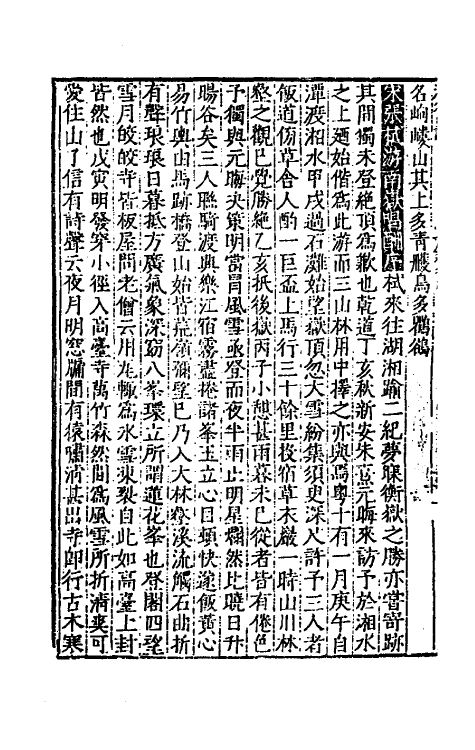 名岣嶁山其上多青雘鳥多鸜鵒
宋張栻游南嶽唱酬序栻來往湖湘踰二紀夢寐衡嶽之勝亦嘗寄跡
其間獨未登絶頂爲歉也乾道丁亥秋新安朱熹元晦來訪予於湘水
之上廼始偕爲此游而三山林用中擇之亦與焉粤十有一月庚午自
潭渡湘水甲戌過石灘始望嶽頂忽大雪紛集須臾深尺許予三人者
飯道傍草舍人酌一巨盃上馬行三十餘里投宿草衣巖一時山川林
壑之觀已覺勝絶乙亥抵後嶽丙子小憩甚雨暮未已從者皆有倦色
予獨與元晦决策明當冒風雪亟登而夜半雨止明星爛然比曉日升
暘谷矣三人聯騎渡興樂江宿霧盡捲諸峯玉立心目頓快遂飯黄心
易竹輿由馬跡橋登山始皆荒嶺彌望已乃入大林壑溪流觸石曲折
有聲琅琅日暮抵方廣氣象深窈八峯環立所謂蓮花峯也登閣四望
雪月皎皎寺皆板屋問老僧云用瓦輒爲冰雪凍裂自此如高臺上封
皆然也戊寅明發穿小徑入高臺寺萬竹森然間爲風雪所折清爽可
愛住山了信有詩聲云夜月明窓牖間有猿嘯清甚出寺即行古木寒